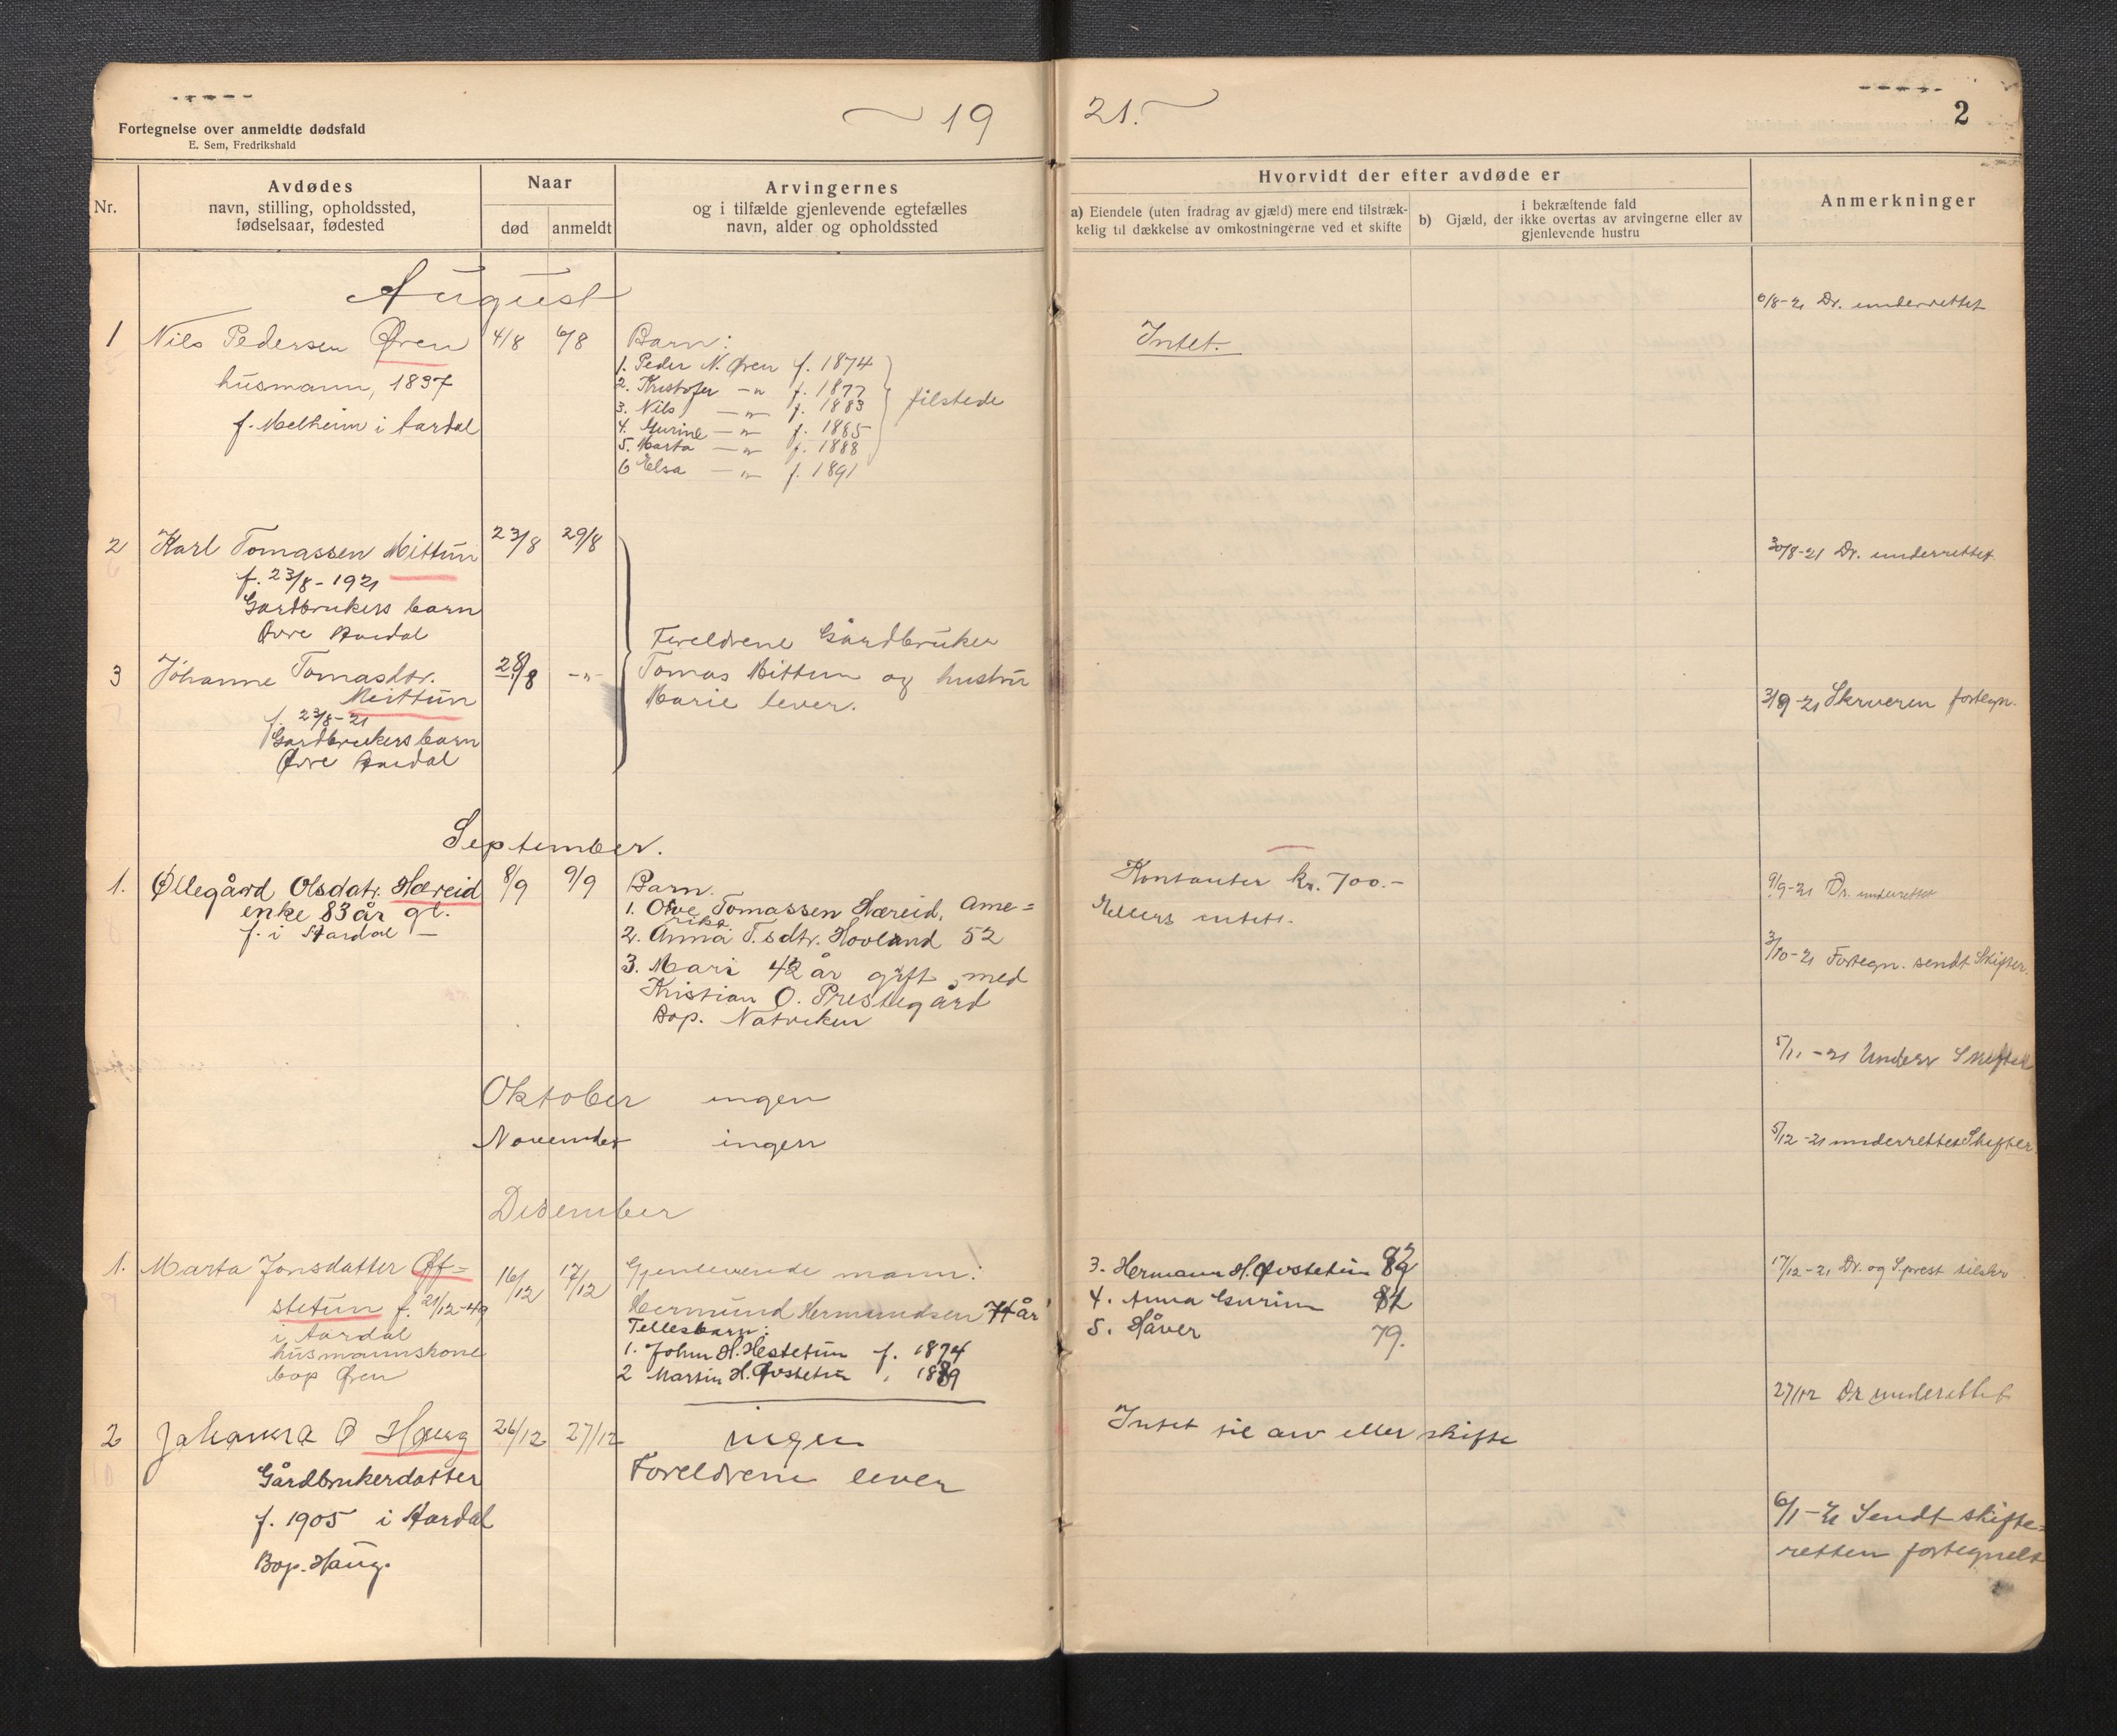 Fortegnelse over anmeldte dødsfald
E. Sem, Fredrikshald
19
21.
2
Nr.
Avdødes
navn, stilling, opholdssted,
fødselsaar, fødested
Naar
død
anmeldt
Arvingernes
og i tilfælde gjenlevende egtefælles
navn, alder og opholdssted
Hvorvidt der efter avdøde er
a) Eiendele (uten fradrag av gjæld) mere end tilstræk-
kelig til dækkelse av omkostningerne ved et skifte
i bekræftende fald
b) Gjæld, der ikke overtas av arvingerne eller av
gjenlevende hustru
Anmerkninger
August
6/8-21 Dr. underrettet
1 Nils Pedersen Øren 4/8 6/8
husmann, 1837
f. Melheim i Aardal
Barn:
1. Peder N. Øren f. 1874
2. Kristofer -"- f. 1877
3. Nils -"- f. 1883
4. Gurine -"- f. 1885
5. Marta -"- f. 1888
6 Elsa -"- f. 1891
tilstede
Intet.
2 Karl Tomassen Mittun 23/8 29/8
f. 23/8-1921
Gardbrukers barn
Øvre Aardal
30/8-21 Dr. underrettet
3 Johanne Tomasdtr. 28/8 -"-
Mittun
f. 23/8-21
Gardbrukers barn
Øvre Aardal
Foreldrene Gårdbruker
Tomas Mittun og hustru
Marie lever.
3/9-21 Skriveren fortegn.
September.
1. Øllegård Olsdatr. Hæreid 8/9 9/9
enke 83 år gl.
f. i Aardal
Barn.
1. Olve Tomassen Hæreid, Ame=
rika
2. Anna T.sdtr. Hovland 52
3. Mari 42 år gift med
Kristian O. Prestegård
Bop. Natviken
Kontanter kr. 700.-
Ellers intet.
9/9-21 Dr. underrettet
3/10-21 Fortegn. sendt Skifter.
5/11-21 Underr Skifter
Oktober ingen
November ingen
5/12-21 underrettet Skifter.
Desember
1. Marta Jonsdatter Øf= 16/12 17/12
stetun f. 21/12-49
i Aardal
husmannskone
bop Øren
Gjenlevende mann:
Hermund Hermundsen 74 år
Fellesbarn:
1. John H. Hestetun f. 1874
2 Martin H. Øvstetun " 1889
3. Hermann H. Øvstetun 82
4. Anna Gurine 84
5. Håver 79.
17/12-21 Dr. og S.prest tilskr
2 Johanna O Haug 26/12 27/12
Gårdbrukerdatter
f. 1905 i Aardal
Bop. Haug.
ingen
Foreldrene lever
Intet til arv eller skifte
27/12 Dr underettet
6/1-21 Sendt skifte=
retten fortegnelse